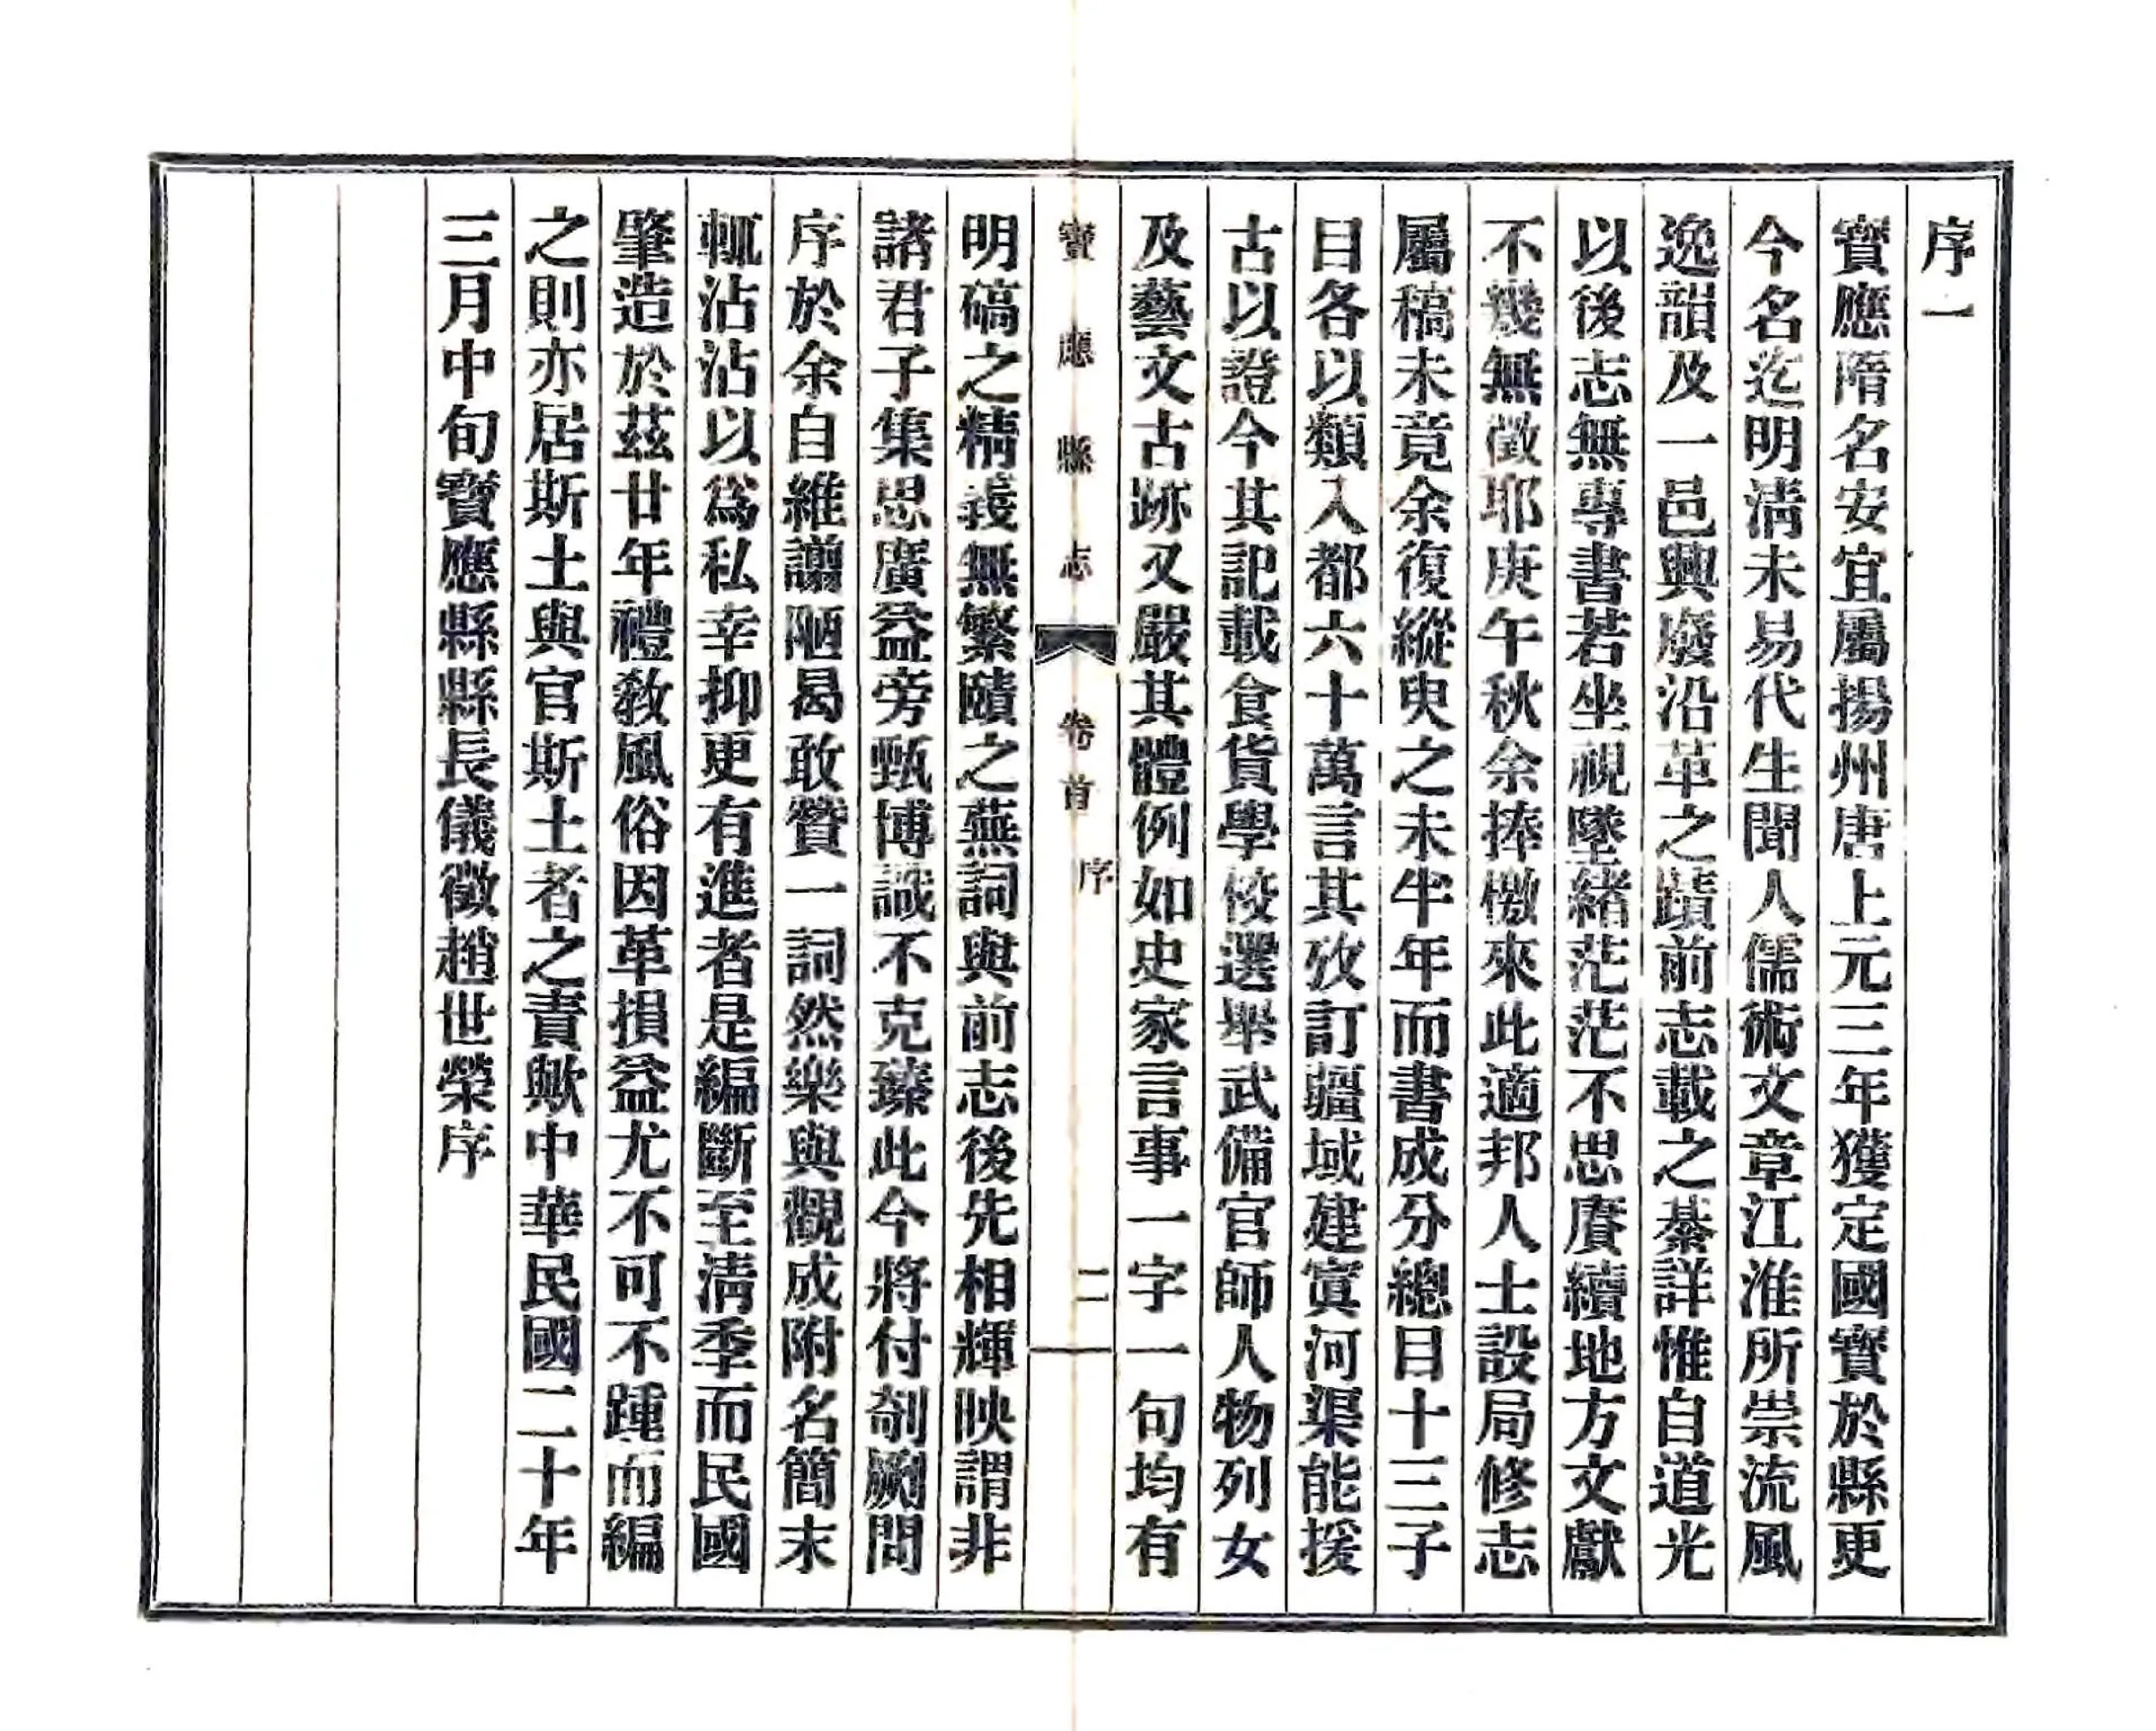 序一
寶應隋名安宜屬揚州唐上元三年獲定國寶於縣更
今名迄明淸未易代生聞人儒術文章江淮所崇流風
逸韻及一邑興廢沿革之蹟前志載之綦詳惟自道光
以後志無專書若坐視墜緒茫茫不思賡續地方文獻
不幾無徵耶庚午秋余捧檄來此適邦人士設局修志
屬稿未竟余復縱臾之未半年而書成分總目十三子
目各以類入都六十萬言其攷訂疆域建寘河渠能援
古以證今其記載食貨學校選舉武備官師人物列女
及藝文古跡又嚴其體例如史家言事一字一句均有
寶應縣志 卷首 序 二
明碻之精義無繁賾之蕪詞與前志後先相輝映謂非
諸君子集思廣益旁甄博識不克臻此今將付剞劂問
序於余自維譾陋曷敢贊一詞然樂與觀成附名簡末
輒沾沾以爲私幸抑更有進者是編斷至淸季而民國
肇造於茲廿年禮敎風俗因革損益尤不可不踵而編
之則亦居斯土與官斯土者之責歟中華民國二十年
三月中旬寶應縣縣長儀徵趙世榮序